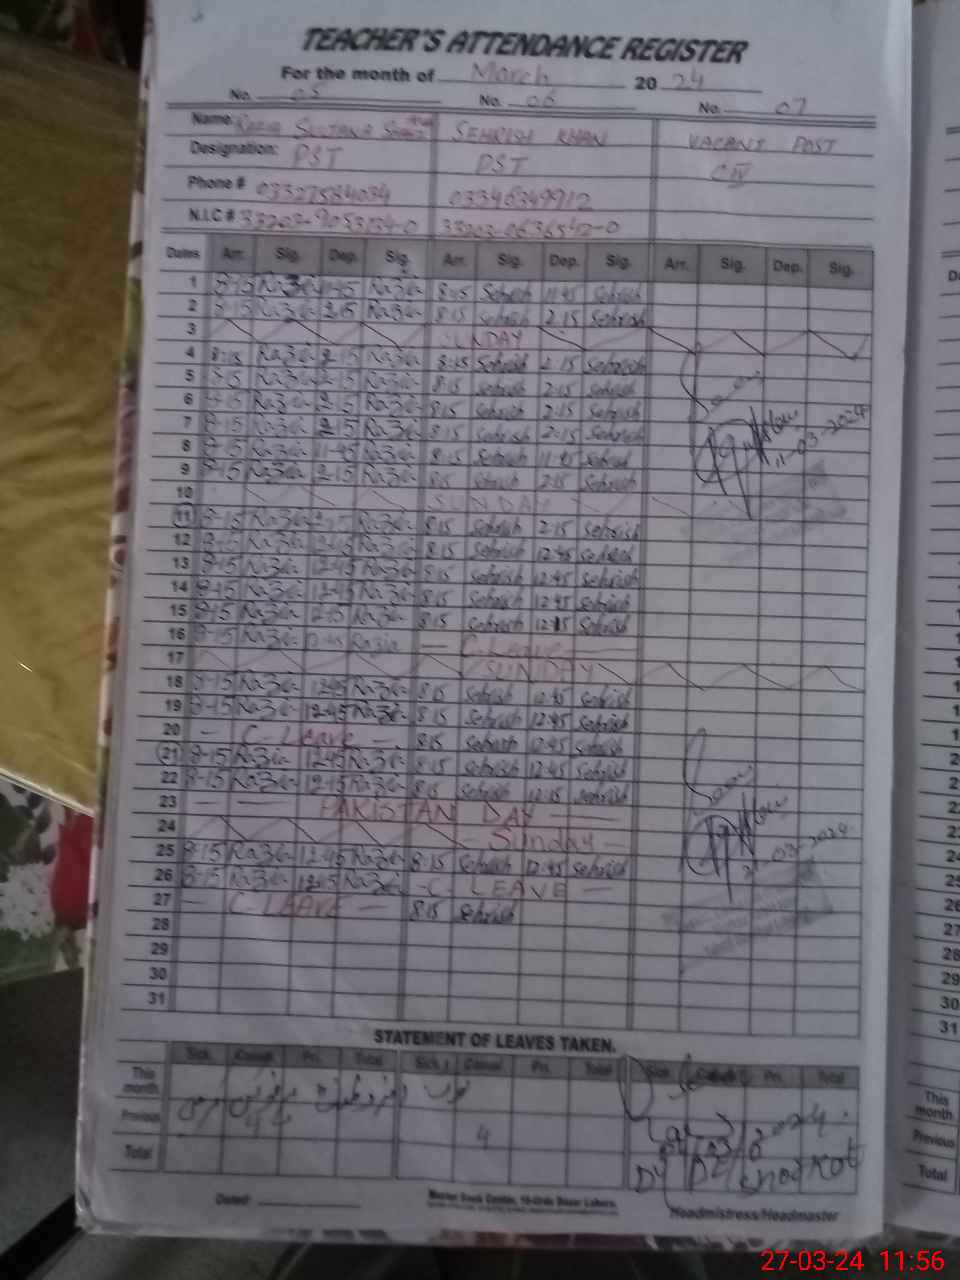 TEACHER'S ATTENDANCE REGISTER
For the month of March 2024
No. 05 No. 06 No. 07
Name: Razia Sultana SEHRISH KHAN VACANT POST
Designation: PST PST CIV
Phone # 03327584034 03346349912
N.I.C # 33203-9053134-0 33203-0636542-0
Dates Arr. Sig. Dep. Sig. Arr. Sig. Dep. Sig. Arr. Sig. Dep. Sig.
1 8-15 Razia 11-45 Razia 8:15 Sehrish 11:45 Sehrish
2 8-15 Razia 2-15 Razia 8:15 Sehrish 2:15 Sehrish
3 SUNDAY
4 8:15 Razia 2-15 Razia 8:15 Sehrish 2:15 Sehrish
5 8-15 Razia 2-15 Razia 8:15 Sehrish 2:15 Sehrish
6 8-15 Razia 2-15 Razia 8:15 Sehrish 2:15 Sehrish
7 8-15 Razia 2-15 Razia 8:15 Sehrish 2:15 Sehrish
8 8-15 Razia 11-45 Razia 8:15 Sehrish 11:45 Sehrish 11-03-2024
9 8-15 Razia 2-15 Razia 8:15 Sehrish 2:15 Sehrish
10 SUNDAY
11 8-15 Razia Razia 8:15 Sehrish 2:15 Sehrish
12 8-15 Razia 12-45 Razia 8:15 Sehrish 12:45 Sehrish
13 8-15 Razia 12-45 Razia 8:15 Sehrish 12:45 Sehrish
14 8-15 Razia 12-45 Razia 8:15 Sehrish 12:45 Sehrish
15 8-15 Razia 12-15 Razia 8:15 Sehrish 12:15 Sehrish
16 8-15 Razia 12-45 Razia — C. Leave —
17 SUNDAY
18 8-15 Razia 12-45 Razia 8:15 Sehrish 12:45 Sehrish
19 8-15 Razia 12-45 Razia 8:15 Sehrish 12:45 Sehrish
20 — C-Leave — 8:15 Sehrish 12:45 Sehrish
21 8-15 Razia 12-45 Razia 8:15 Sehrish 12:45 Sehrish
22 8-15 Razia 12-15 Razia 8:15 Sehrish 12:15 Sehrish
23 — — PAKISTAN DAY —
24 — Sunday —
25 8-15 Razia 12-45 Razia 8:15 Sehrish 12:45 Sehrish 21-03-2024
26 8-15 Razia 12-45 Razia - C LEAVE —
27 — C-LEAVE — 8:15 Sehrish
28
29
30
31
STATEMENT OF LEAVES TAKEN.
Sick. Casual. Pri. Total Sick. Casual. Pri. Total Sick. Casual. Pri. Total
This month
Previous 4
Total
Dated:
Master Book Center, 10-Urdu Bazar Lahore.
Headmistress/Headmaster
27-03-24 11:56